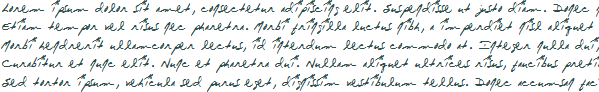 Lorem ipsum dolor sit amet, consectetur adipiscing elit. Suspendisse ut justo diam. Donec
Etiam tempor vel risus nec pharetra. Morbi fringilla luctus nibh, a imperdiet nisl aliquet
Morbi hendrerit ullamcorper lectus, id interdum lectus commodo at. Integer nulla dui,
Curabitur et nunc elit. Nunc et pharetra dui. Nullam aliquet ultrices risus, faucibus preti
Sed tortor ipsum, vehicula sed purus eget, dignissim vestibulum tellus. Donec accumsan fac